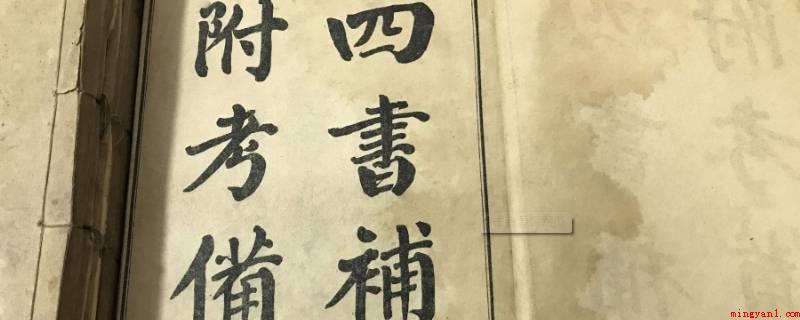 四書補
附考備
mingyan1.com